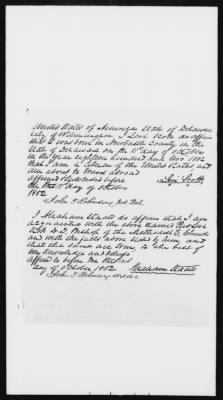 United States of America State of Delaware
City of Wilmington I Levi Scott do affirm
that I was born in Newcastle County in the
State of Delaware on the 11th day of October
in the year eighteen hundred and two 1802
that I am a Citizen of the United States, and
am about to travel abroad
Affirmed & Subscribed before Levi Scott,
me this day of October
1852
John F Robinson,
I Abraham Staats do affirm that I am
acquainted with the above named Rev Levi
Scott D.D. Bishop of the Methodist E. Church
and with the facts above stated by him, and
that the same are true, to the best of
my knowledge and belief
affirmed to before me this 1st
day of October 1852 Abraham Staats
John F Robinson